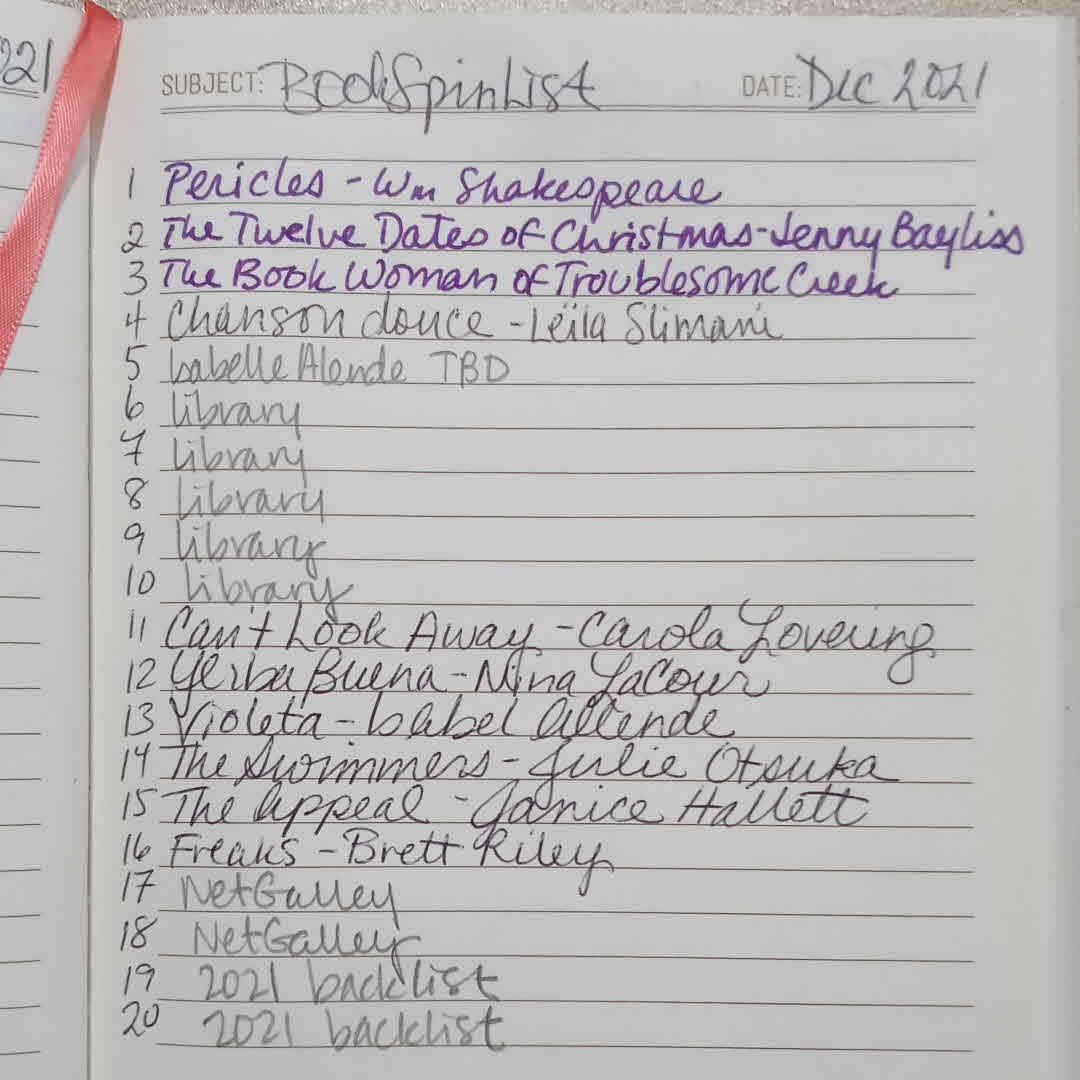 021
SUBJECT: BookSpinList DATE: Dec 2021
1 Pericles - Wm Shakespeare
2 The Twelve Dates of Christmas - Jenny Bayliss
3 The Book Woman of Troublesome Creek
4 Chanson douce - Leïla Slimani
5 Isabelle Alende TBD
6 library
7 library
8 library
9 library
10 library
11 Can't Look Away - Carola Lovering
12 Yerba Buena - Nina LaCour
13 Violeta - Isabel Allende
14 The Swimmers - Julie Otsuka
15 The Appeal - Janice Hallett
16 Freaks - Brett Riley
17 NetGalley
18 NetGalley
19 2021 backlist
20 2021 backlist